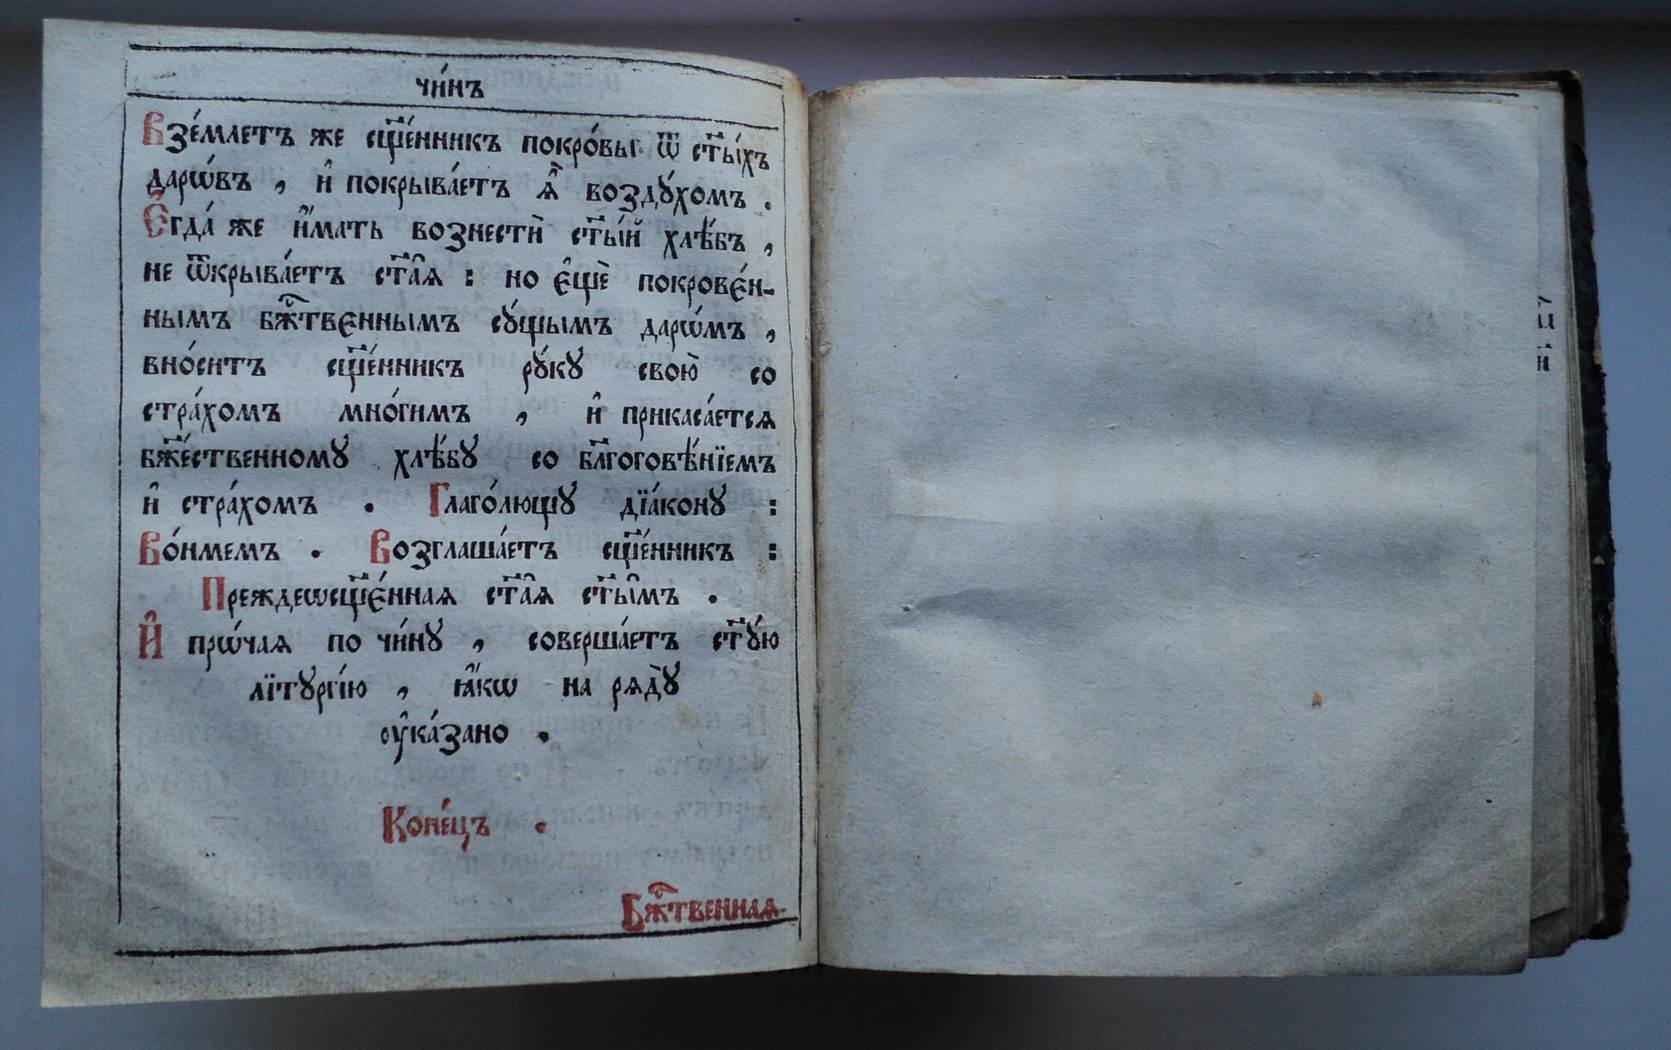 чи́нъ
Взе́млетъ же сщ҃е́нникъ покро́вы ѿ ст҃ы́хъ
дарѡ́въ , и҆ покрыва́етъ ѧ҆̀ возду́хомъ .
Є҆гда́ же и҆́мать вознестѝ ст҃ы́й хлѣ́бъ ,
не ѿкрыва́етъ ст҃а̑ѧ : но є҆щѐ покрове́н-
нымъ бж҃ⷭ҇твєннымъ су́щымъ дарѡ́мъ ,
вно́ситъ сщ҃е́нникъ ру́ку свою̀ со
стра́хомъ мно́гимъ , и҆ прикаса́етсѧ
бж҃е́ственному хлѣ́бу со бл҃гоговѣ́нїемъ
и҆ стра́хомъ . Глаго́лющу дїа́кону :
Во́нмемъ . Возглаша́етъ сщ҃е́нникъ :
Преждеѡсщ҃є́ннаѧ ст҃а̑ѧ ст҃ы̑мъ .
И҆ прѡ́чаѧ по чи́ну , соверша́етъ ст҃у́ю
лїтургі́ю , ꙗ҆́кѡ на рѧдꙋ̀
ᲂу҆ка́зано .
Коне́цъ .
Бж҃ⷭ҇твеннаѧ